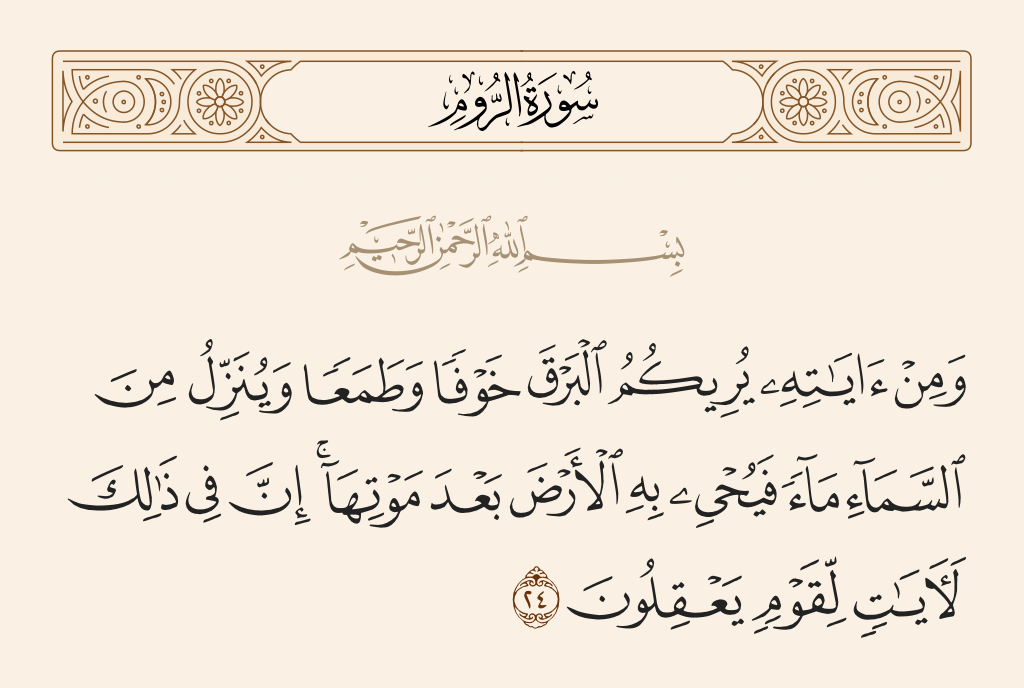 سُورَةُ الرُّومِ
بِسْمِ ٱللَّهِ ٱلرَّحْمَٰنِ ٱلرَّحِيمِ
وَمِنْ ءَايَـٰتِهِۦ يُرِيكُمُ ٱلْبَرْقَ خَوْفًا وَطَمَعًا وَيُنَزِّلُ مِنَ
ٱلسَّمَآءِ مَآءً فَيُحْىِۦ بِهِ ٱلْأَرْضَ بَعْدَ مَوْتِهَآ ۚ إِنَّ فِى ذَٰلِكَ
لَـَٔايَـٰتٍ لِّقَوْمٍ يَعْقِلُونَ ٢٤